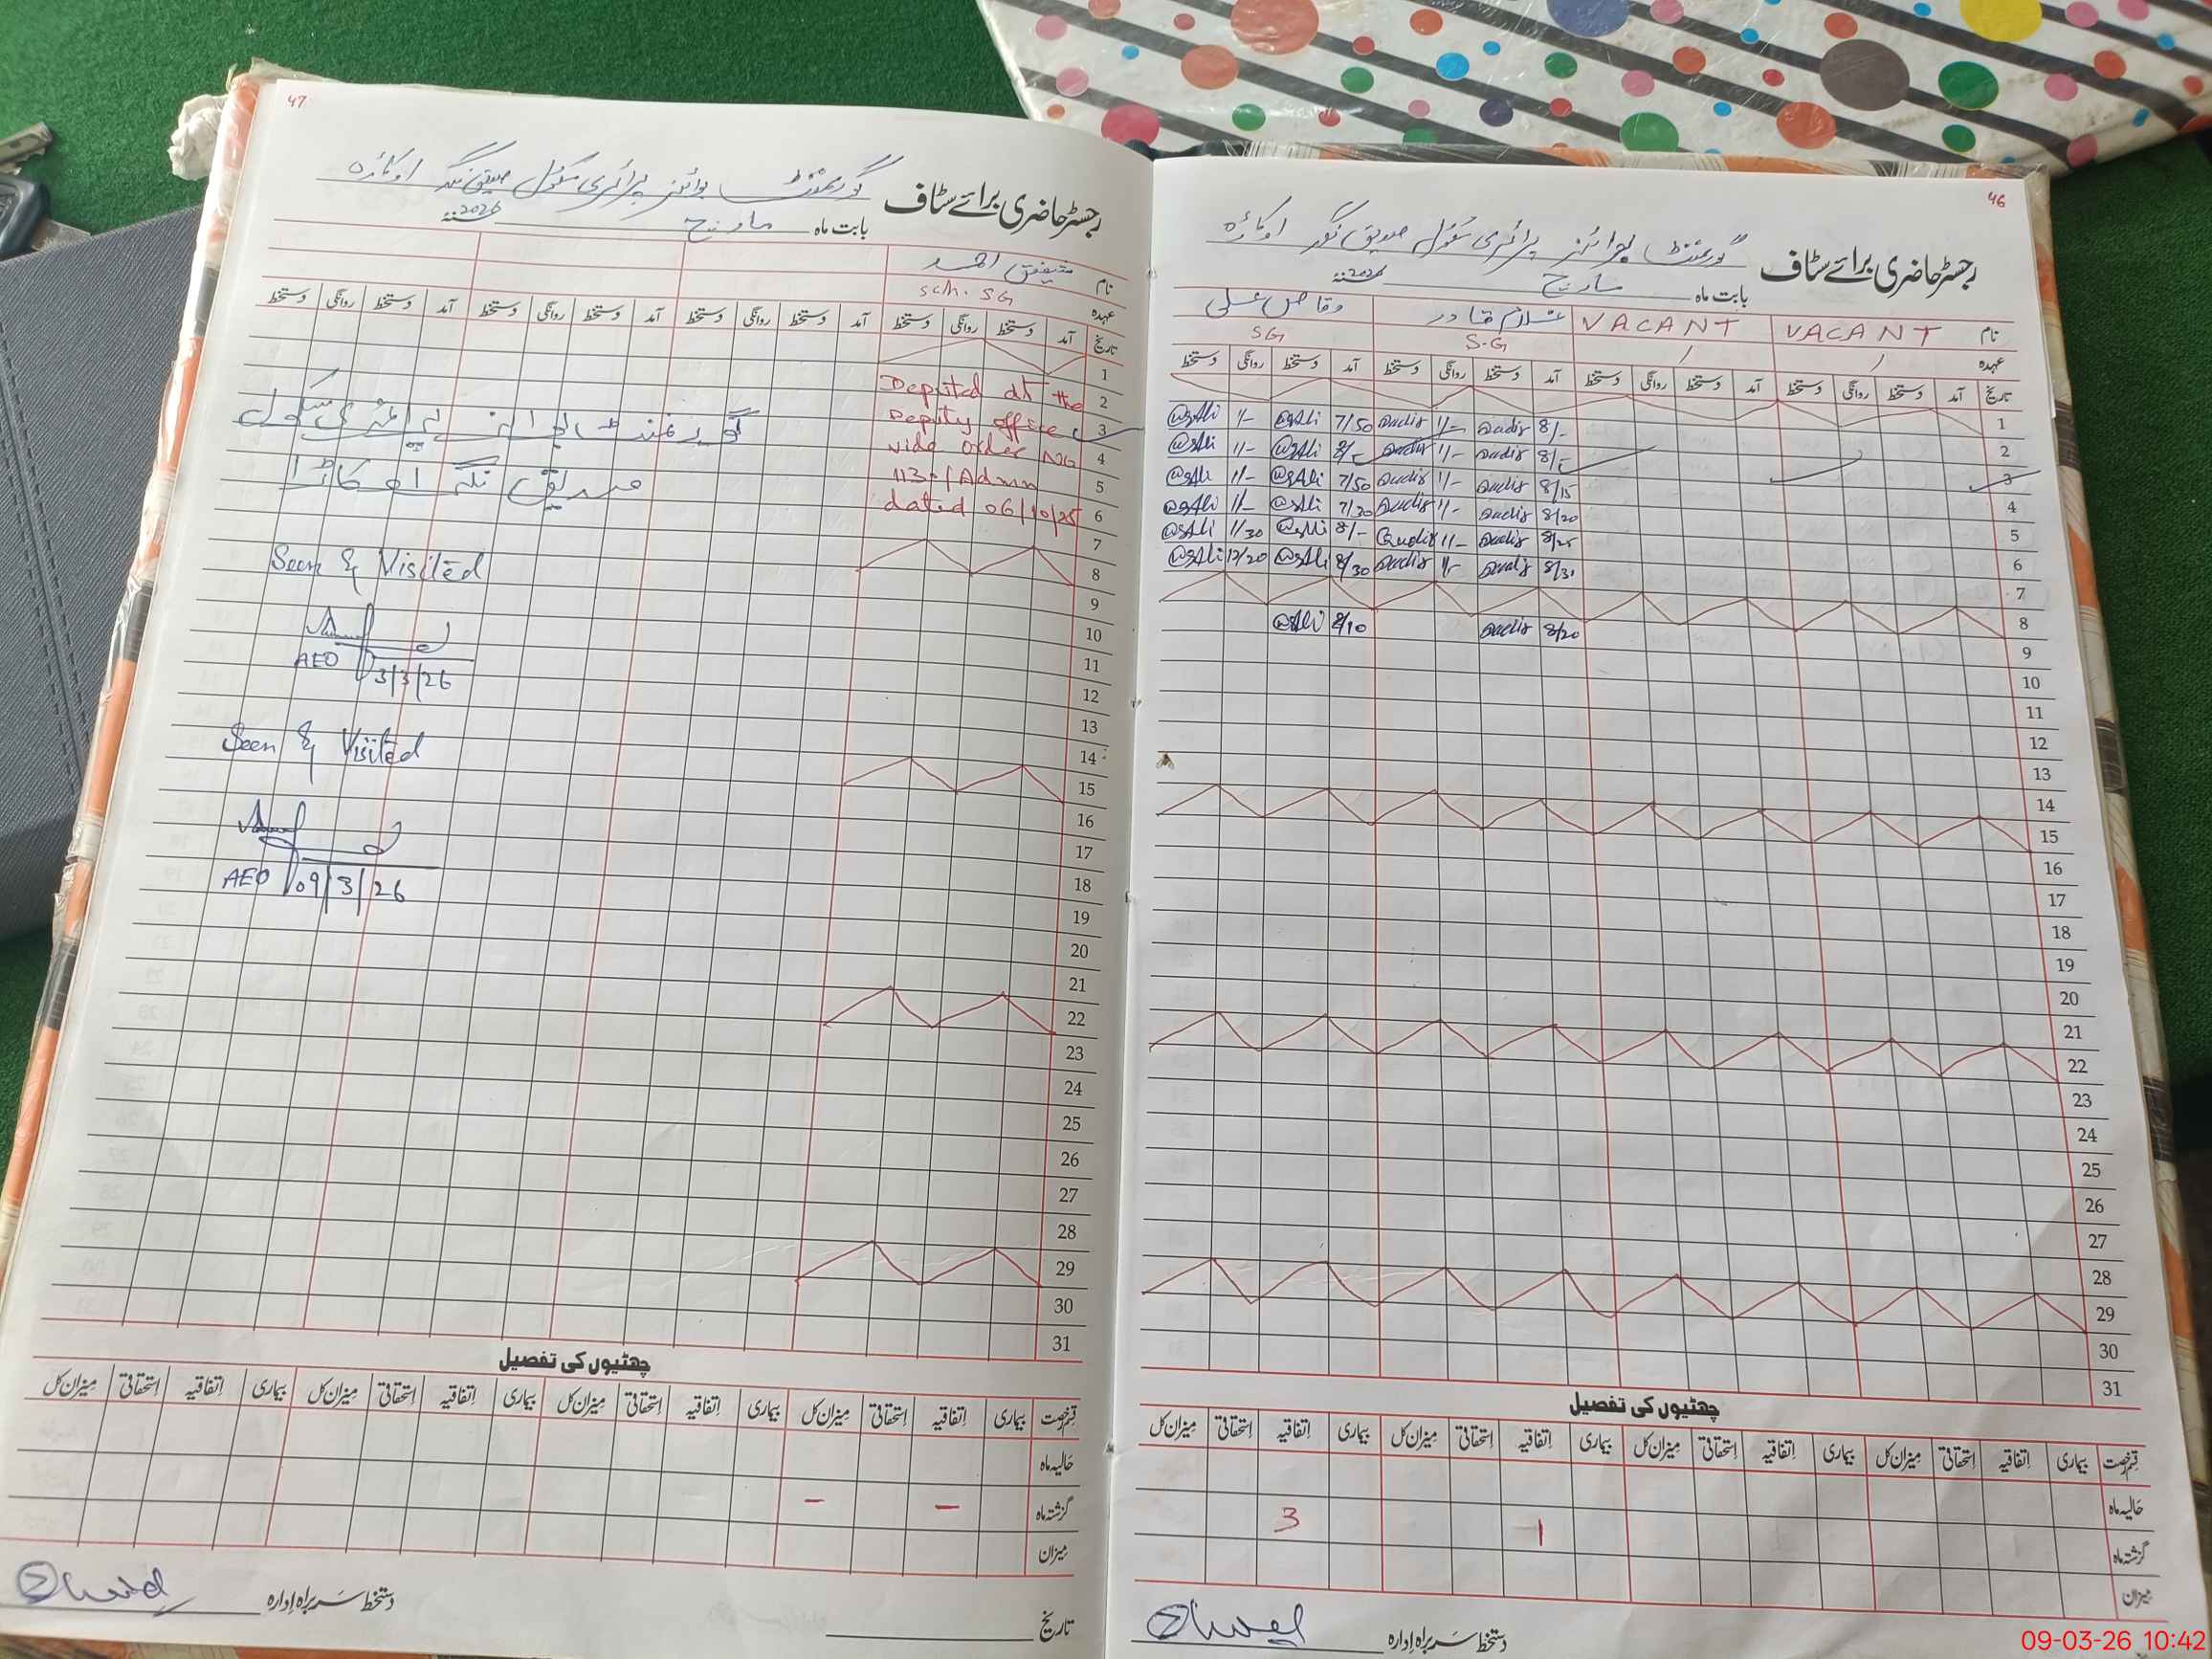 46
رجسٹر حاضری برائے سٹاف گورنمنٹ بوائز پرائمری سکول صدیق نگر اوکاڑہ
بابت ماہ مارچ 2026ء
نام VACANT VACANT غلام قادر وقاص علی
عہدہ / / S.G SG
تاریخ آمد دستخط روانگی دستخط آمد دستخط روانگی دستخط آمد دستخط روانگی دستخط آمد دستخط روانگی دستخط
1
2 8/- Qadir 1/- Qadir 7/50 @sAli 1/- @sAli
3 8/- Qadir 1/- Qadir 8/- @sAli 1/- @sAli
4 8/15 Qadir 1/- Qadir 7/50 @sAli 1/- @sAli
5 8/20 Qadir 1/- Qadir 7/30 @sAli 1/- @sAli
6 8/25 Qadir 1/- Qadir 8/- @sAli 1/30 @sAli
7 8/31 Qadir 1/- Qadir 8/30 @sAli 12/20 @sAli
8
9 8/20 Qadir 8/10 @sAli
10
11
12
13
14
15
16
17
18
19
20
21
22
23
24
25
26
27
28
29
30
31
چھٹیوں کی تفصیل
قسم رخصت بیماری اتفاقیہ استحقاقی میزان کل بیماری اتفاقیہ استحقاقی میزان کل بیماری اتفاقیہ استحقاقی میزان کل بیماری اتفاقیہ استحقاقی میزان کل
حالیہ ماہ
گزشتہ ماہ 1 3
میزان
دستخط سربراہ ادارہ
47
رجسٹر حاضری برائے سٹاف گورنمنٹ بوائز پرائمری سکول صدیق نگر اوکاڑہ
بابت ماہ مارچ 2026ء
نام شفیق احمد
عہدہ Sch. SG
تاریخ آمد دستخط روانگی دستخط آمد دستخط روانگی دستخط آمد دستخط روانگی دستخط آمد دستخط روانگی دستخط
1
2
3
4
5
6
7
8
9
10
11
12
13
14
15
16
17
18
19
20
21
22
23
24
25
26
27
28
29
30
31
Deputed at the
Deputy office
vide order NO
1130/Admn
dated 06/10/25
گورنمنٹ بوائز پرائمری سکول
صدیق نگر اوکاڑا
Seen & Visited
AEO 3/3/26
Seen & Visited
AEO 09/3/26
چھٹیوں کی تفصیل
قسم رخصت بیماری اتفاقیہ استحقاقی میزان کل بیماری اتفاقیہ استحقاقی میزان کل بیماری اتفاقیہ استحقاقی میزان کل بیماری اتفاقیہ استحقاقی میزان کل
حالیہ ماہ
گزشتہ ماہ - -
میزان
تاریخ دستخط سربراہ ادارہ
09-03-26 10:42